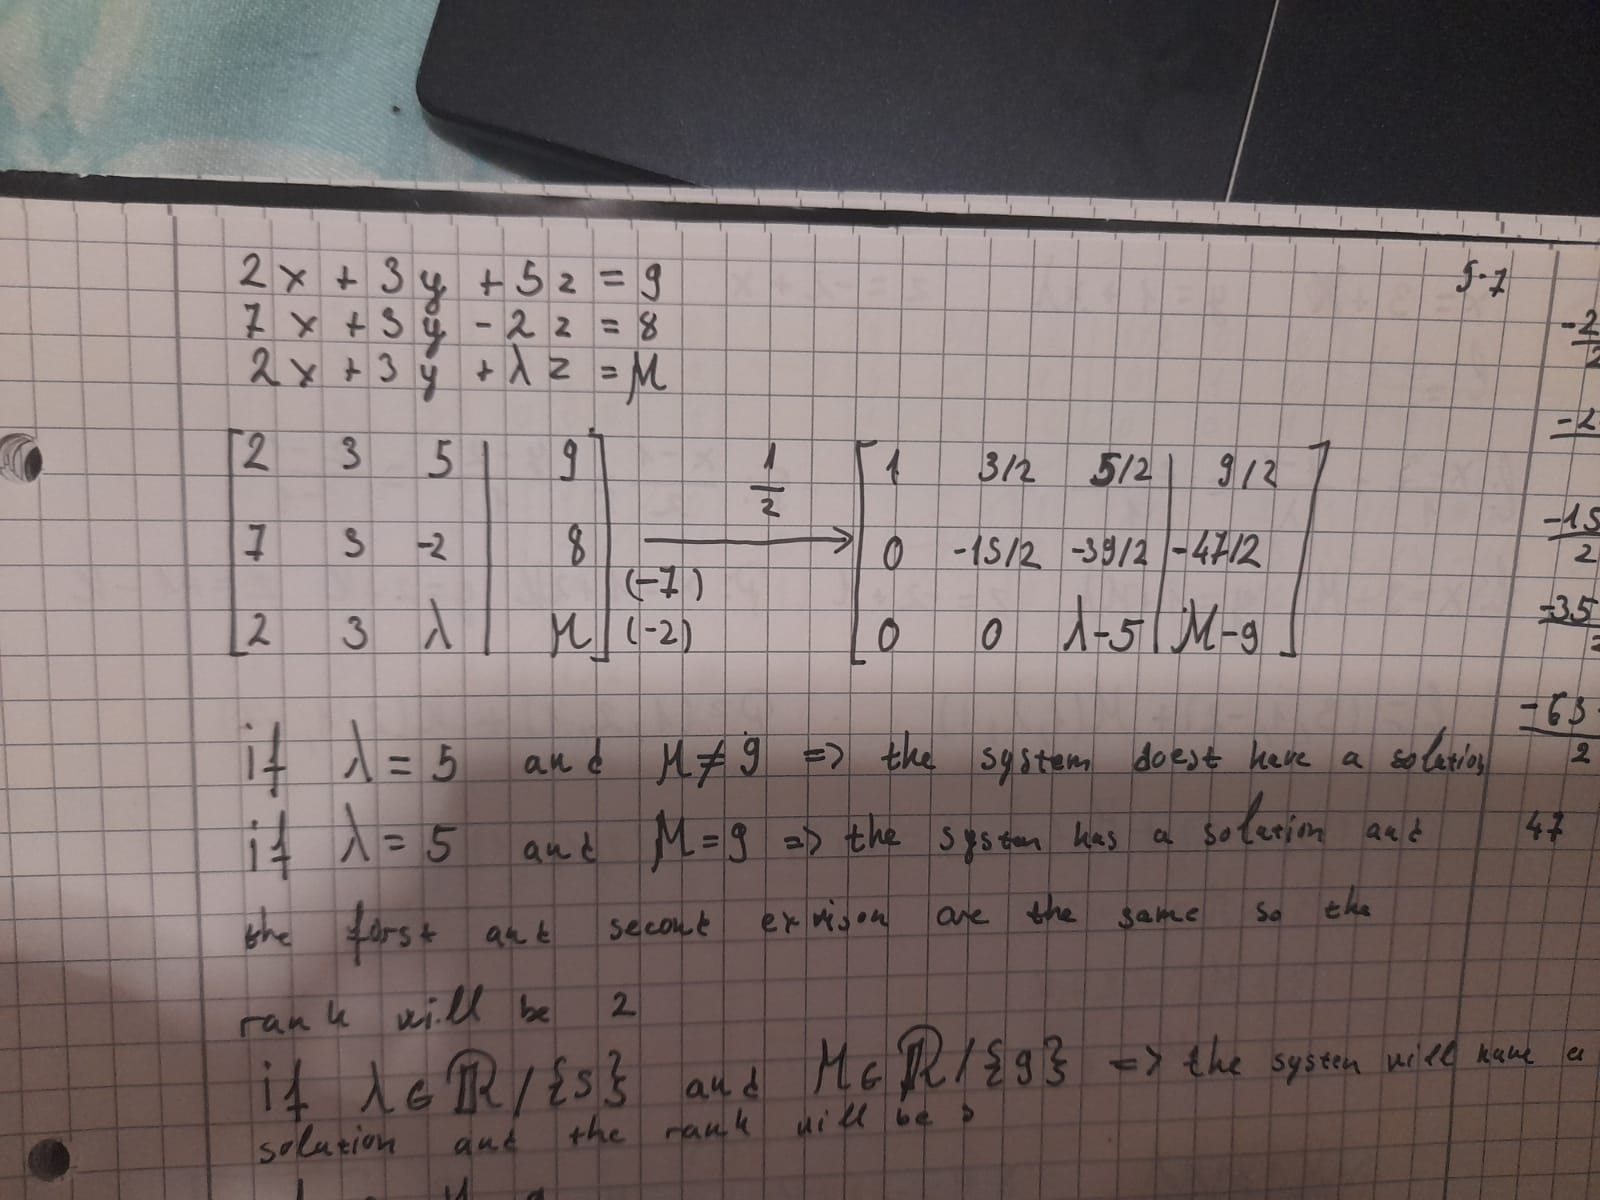 2x + 3y + 5z = 9
7x + 3y - 2z = 8
2x + 3y + λz = M
[2 3 5 | 9]
[7 3 -2 | 8] (-7)
[2 3 λ | M] (-2)
1/2
[1 3/2 5/2 | 9/2]
[0 -15/2 -39/2 | -47/2]
[0 0 λ-5 | M-9]
if λ = 5 and M ≠ 9 => the system doest have a solution
if λ = 5 and M = 9 => the system has a solution and
the forst and second are the same so the
rank will be 2
if λ ∈ ℝ / {5} and M ∈ ℝ / {9} => the system will have a
solution and the rank will be 3
5·7
-15/2
-35
-63
2
47